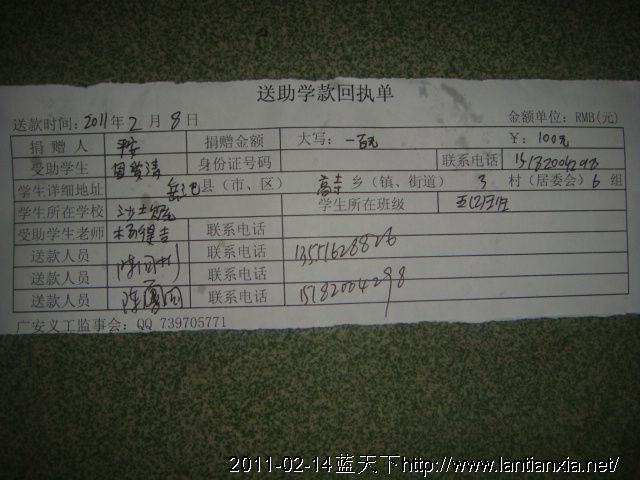 送助学款回执单
送款时间:2011年2月8日 金额单位: RMB(元)
捐赠人 捐赠金额 大写: 一百元 ¥: 100元
受助学生 身份证号码 联系电话 15182004298
学生详细地址 岳池县(市、区) 高寺乡(镇、街道) 3村(居委会)6组
学生所在学校 学生所在班级 五(2)班
受助学生老师 联系电话
送款人员 联系电话 13551628826
送款人员 联系电话
送款人员 联系电话 15182004298
广安义工监事会: QQ 739705771
2011-02-14蓝天下http://www.lantianxia.net/